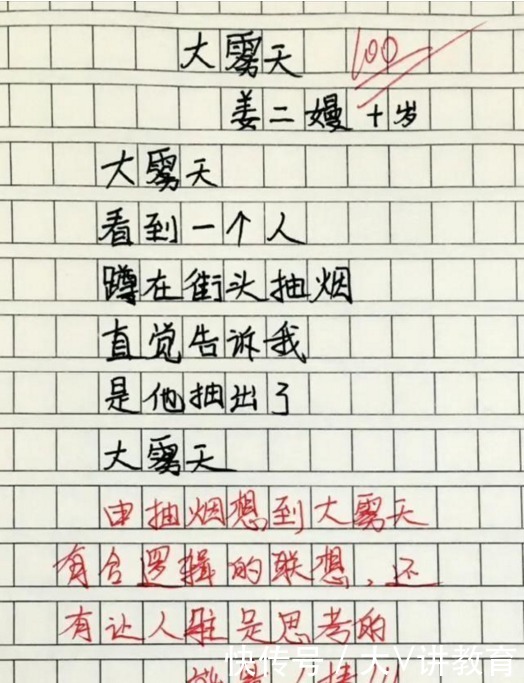 大雾天
100
姜二嫚 十岁
大雾天
看到一个人
蹲在街头抽烟
直觉告诉我
是他抽出了
大雾天
由抽烟想到大雾天
有合逻辑的联想,还
有让人难是思考的
快传号 / 大V讲教育